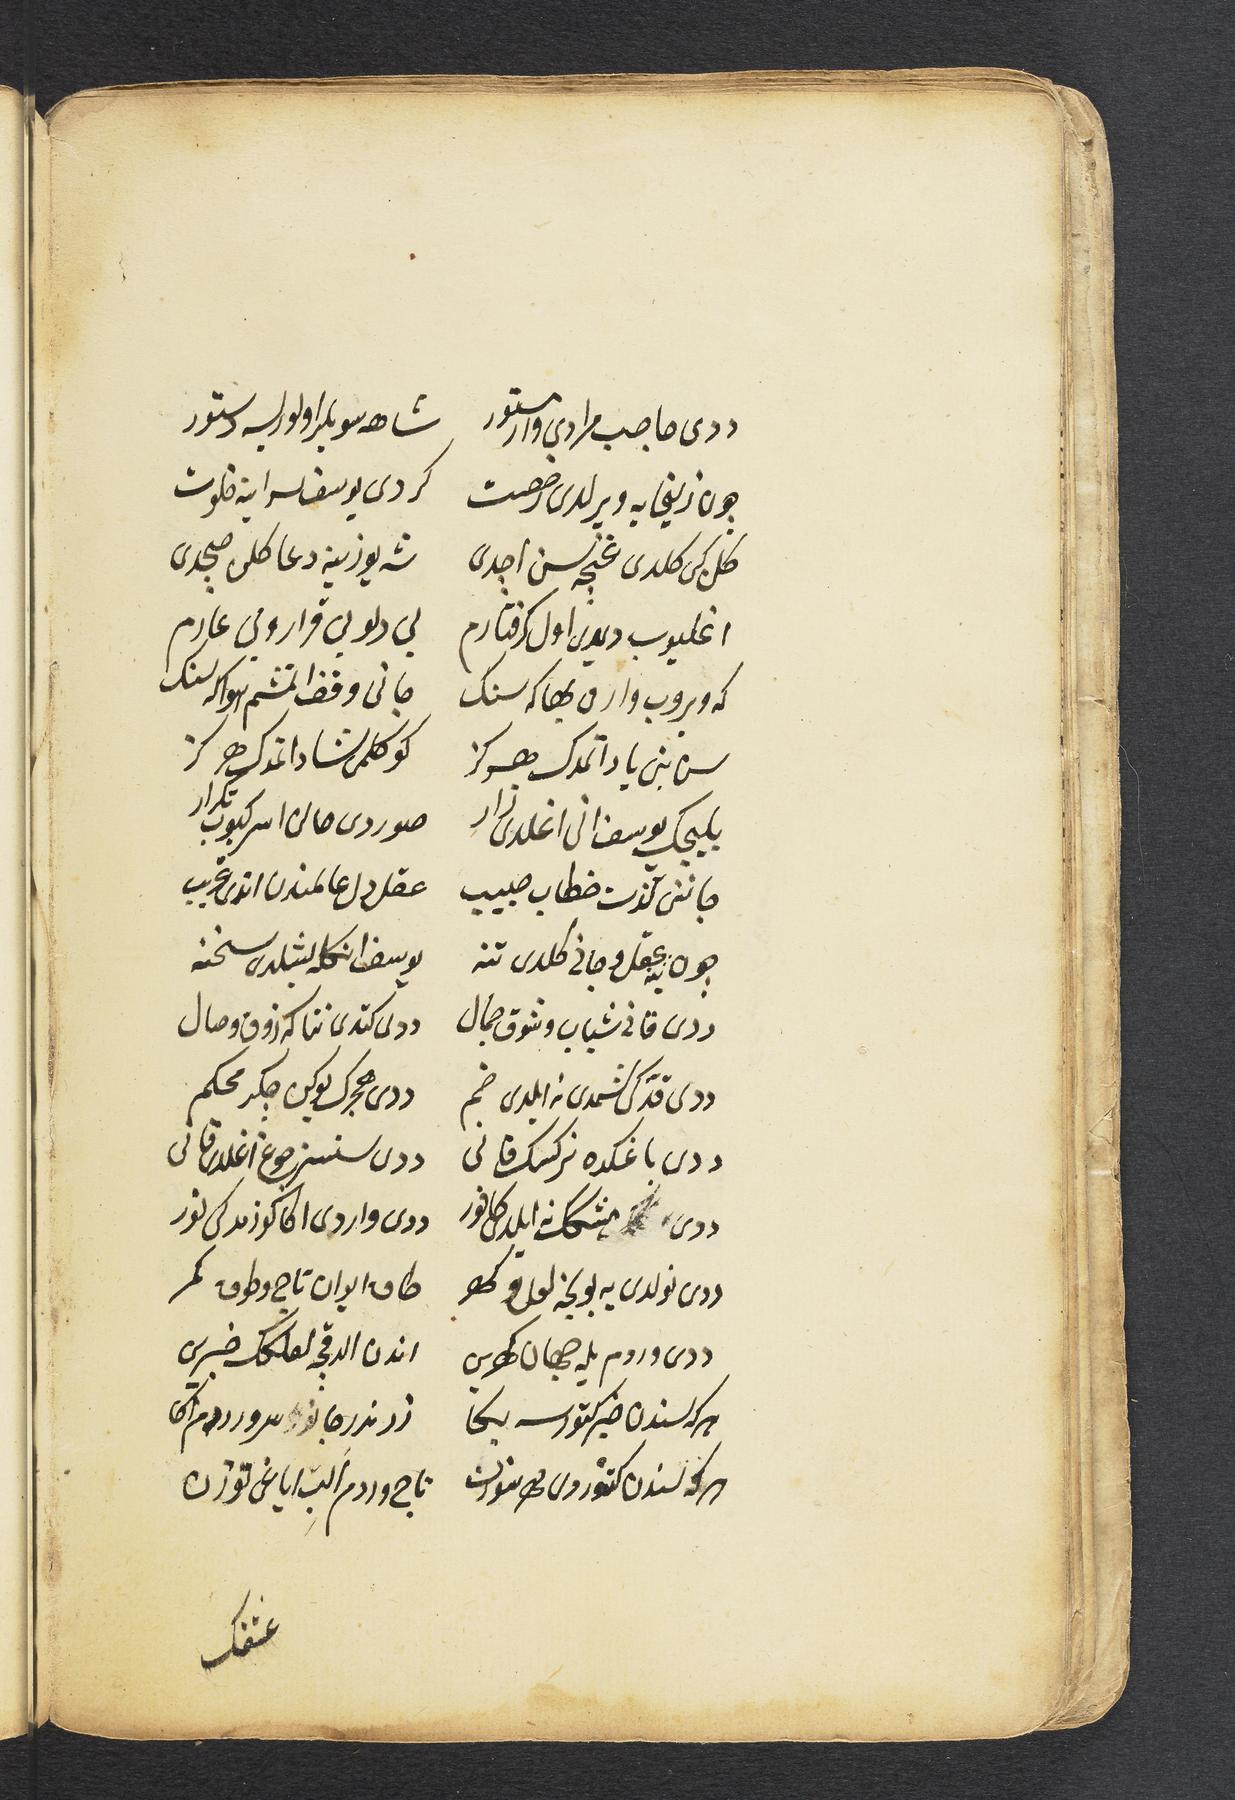 ددی حاجب مرادی وار مستور شاهه سویلر اولورسه دستور
چون زلیخایه ویرلدی رخصت کردی یوسف سراینه خلوت
کل کبی کلدی غنچه سن اچدی شه یوزینه دعا کلن صچدی
اغلیوب دیدی اول کرفتارم بی دل و بی قرار و بی عارم
که ویروب وارمی بهاکه سنک جانی وقف اتمشم هواکه سنک
سن بنی یاد اتمدک هرکز کوکلمی شاد اتمدک هرکز
بلیجک یوسف انی اغلدی زار صوردی حالن اسرکیوب تکرار
جاننی خطاب حبیب عقل دل عالمندن اتدی غریب
چون ینه عقل و جانی کلدی تنه یوسف انکله بشلدی سخنه
ددی قانی شباب و شوق جمال ددی کتدی نتاکه ذوق وصال
ددی قدکی نشمدی نه ایلدی خم ددی هجرک یوکین چکر محکم
ددی باغکده نرکسک قانی ددی سنسز اغلدی قانی
ددی مشککی نه ایلدی کافور ددی واردی اکا کوزمدکی نور
ددی نولدی یه بو لعل و کهر طاق ایوان تاج و طوق کمر
ددی وردم یله جهان کهرین اندن الدقجه لعلکک خبرین
هر که سندن خبر کتورسه بکا زر ندر سر وردم اکا
هر که سندن کتوردی تاج وردم الب ایاغی توزن
عشقک